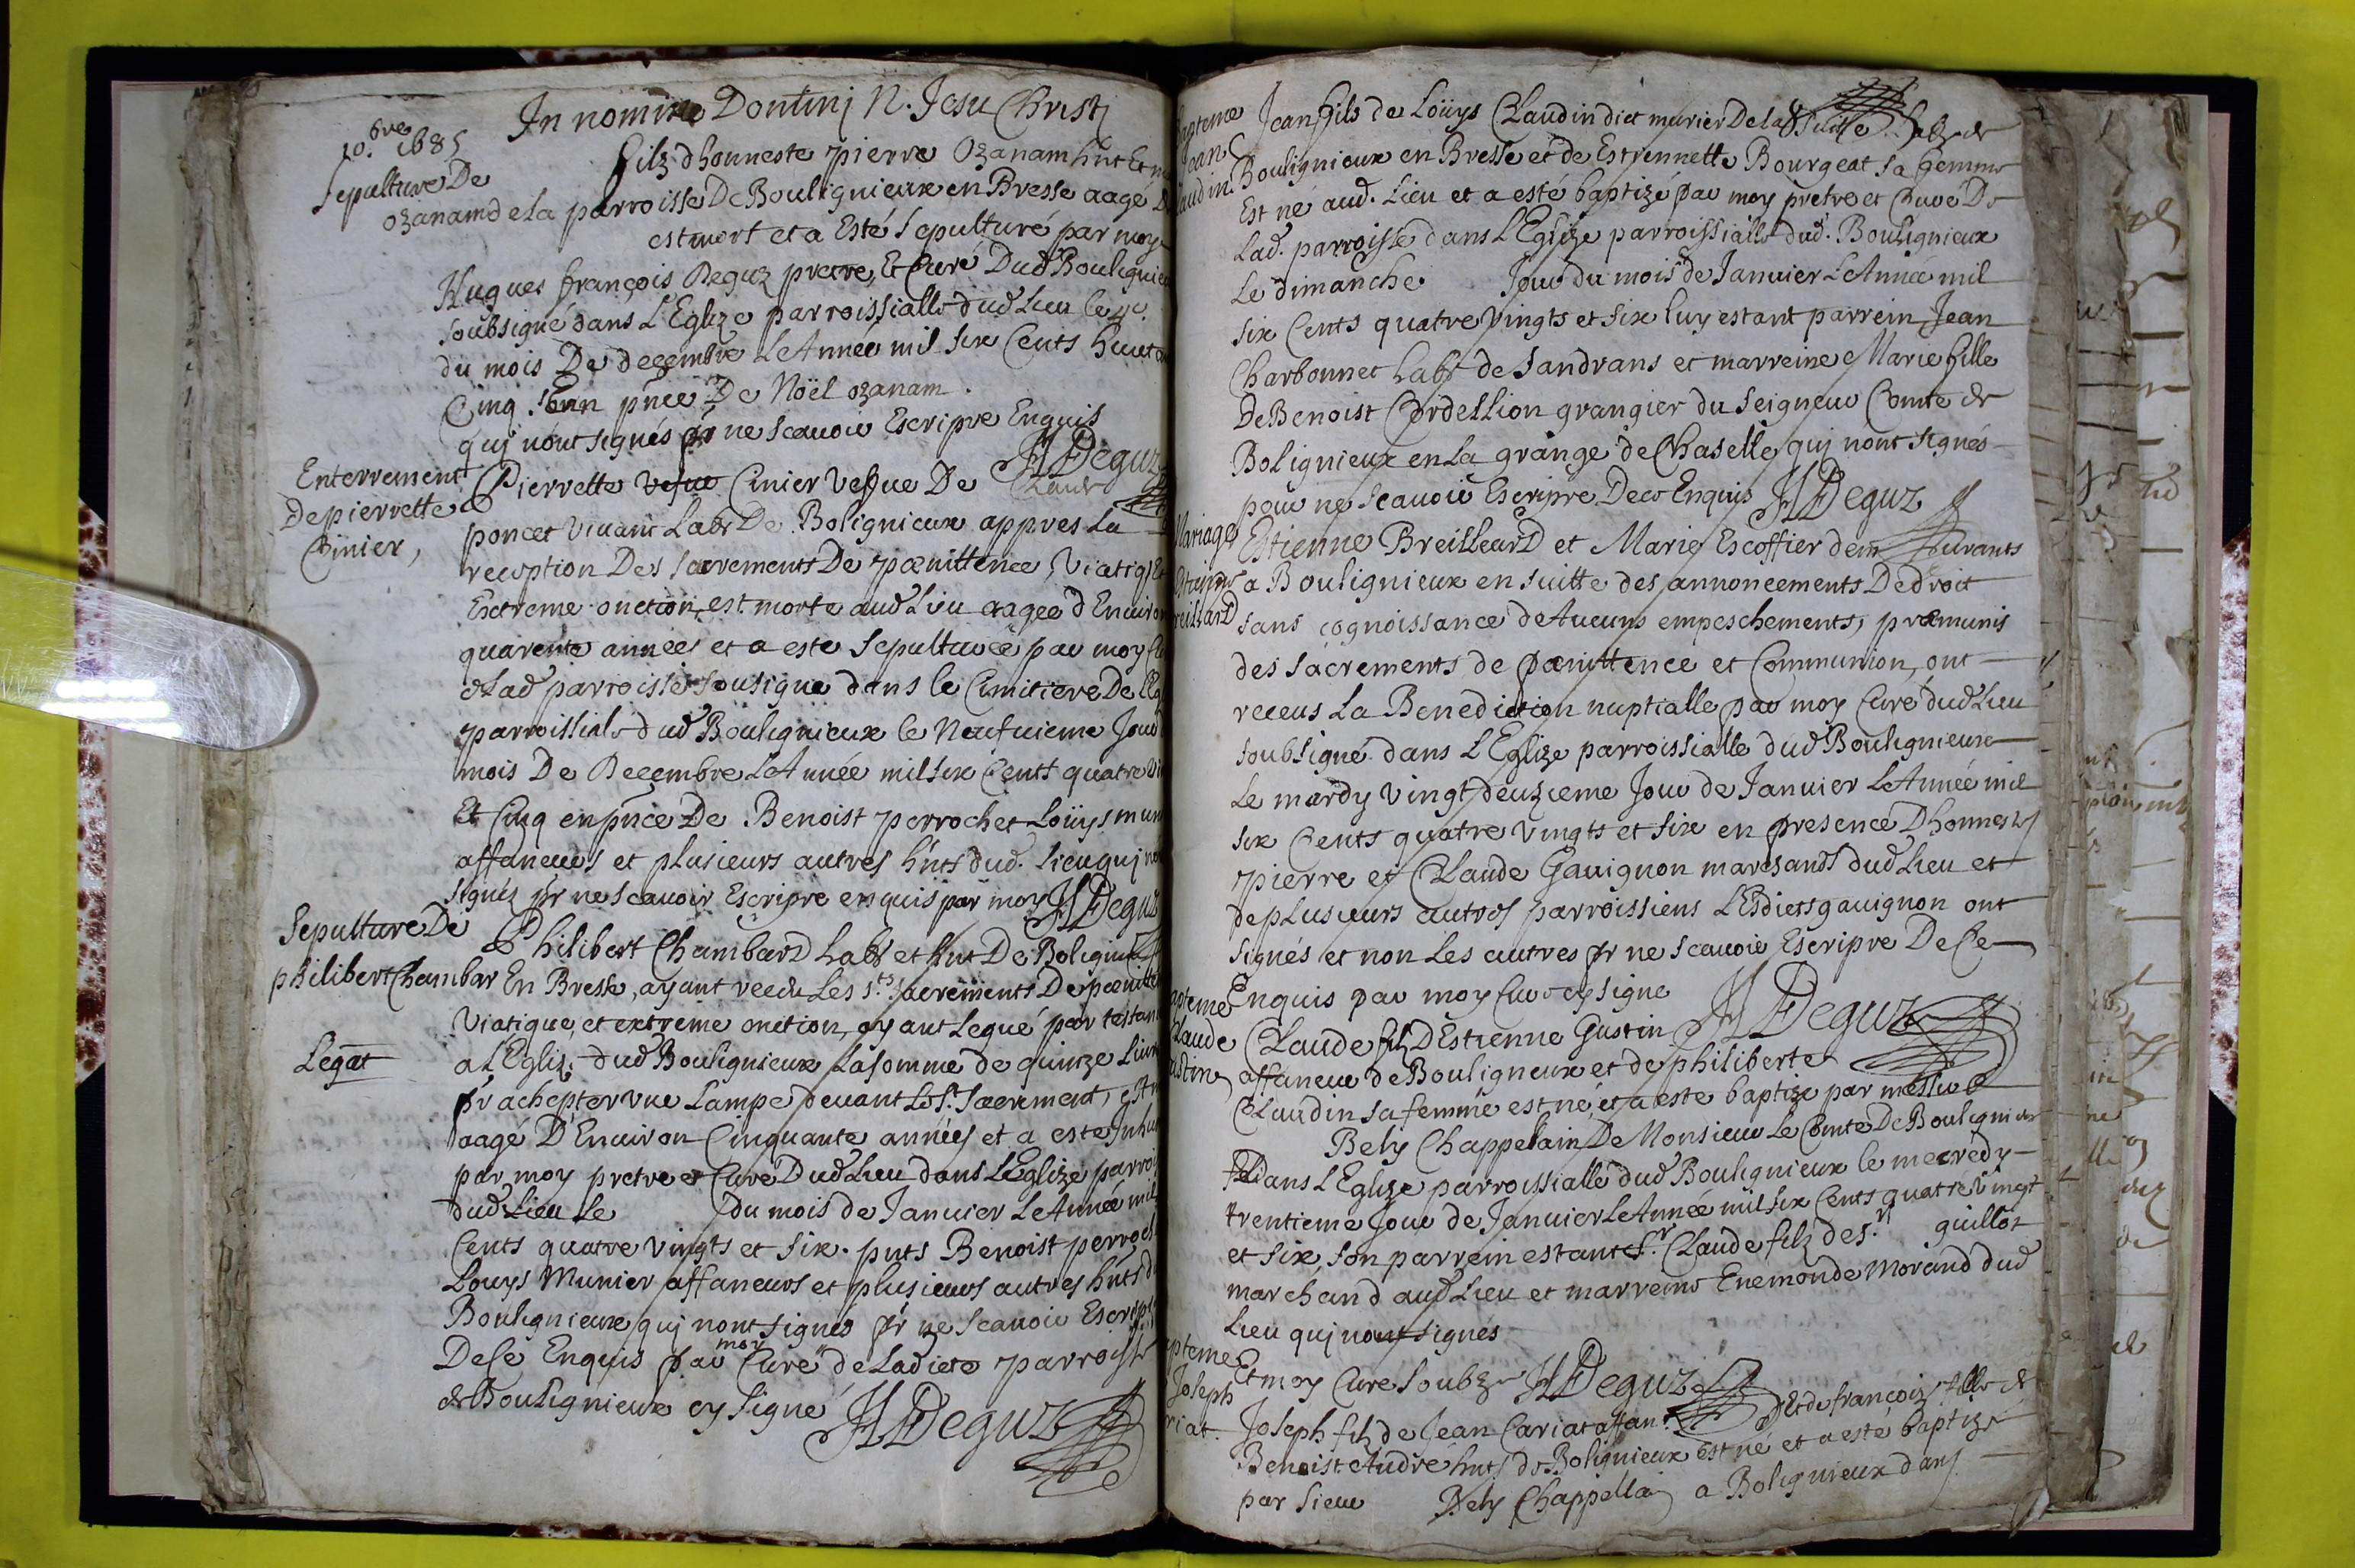 In nomine Domini N. Jesu Christi
10.bre 1685
filz dhonneste pierre Ozanam hnt Et
Sepulture De
ozanam de la parroisse De Boulignieux en Bresse aagé
est mort et a Esté Sepulturé par moy
Hugues françois Deguz pretre Et Curé Dud Boulignieu
soubsigné dans L'Eglize parroissialle dud Lieu le
du mois De decembre L'Année mil six Cents huict
Cinq. en pnce De Noël ozanam.
quj nont signés pr ne scauoir Escripre Enquis
HF Deguz
Enterrement
De pierrette
Cinier,
Pierrette Cinier vesue De Claude
poncet viuant habt De Bolignieux appres La
reception Des sacrements De pœnittence, Viatiq Et
Extreme onction, est morte aud Lieu aagee d'Enuiron
quarente années et a este sepulturée par moy
d Lad parroisse sousigné dans le Cimitiere De
parroissiale dud Boulignieux le Neufuieme Jour
mois De Decembre L'Année mil six Cents quatre
Et Cinq en pnce De Benoist perrochet Loüys mun
affaneurs et plusieurs autres hnts dud. lieu quj
signés pr ne scauoir Escripre enquis par moy HF Deguz
Sepulture De
philibert Chambar
Philibert Chambard habt et hnt De Bolignieu
En Bresse, ayant receu Les sts sacrements De pœnitten
Viatique, et extreme onction, ayant Legué par testam
Legat
a L'Eglize dud Boulignieux La somme de quinze Liur
pr achepter vne Lampe deuant Le st. sacrement, est
aagé D'Enuiron Cinquante années et a este Inhu
par moy pretre et Curé Dud Lieu dans L'Eglize parroi
dud Lieu Le du mois de Januier L'Année mil
Cents quatre vingts et six. pnts Benoist perroch
Louys Munier affaneurs et plusieurs autres hnts d
Boulignieux quj nont signés pr ne scauoir Escrip
De Ce Enquis par moy Curé de Ladicte parroisse
de Boulignieux cy signé HF Deguz
apteme
Jean
laudin
Jean fils de Loüys Claudin dict murier De la habt de
Boulignieux en Bresse et de Estiennette Bourgeat sa femme
Est né aud. Lieu et a esté baptizé par moy pretre et Curé De
Lad. parroisse dans L'Eglize parroissialle dud. Boulignieux
Le dimanche Jour du mois de Januier L'Année mil
six Cents quatre vingts et six luy estant parrein Jean
Charbonnet habt de Sandrans et marreine Marie fille
De Benoist Cordellion grangier du seigneur Comte de
Bolignieux en La grange de Chaselle quj nont signés
pour ne scauoir Escripre De ce Enquis HF Deguz
Mariage
Estienne
reillard
Estienne Breilleard et Marie Escoffier demeurants
a Boulignieux en suitte des annoncements De droit
sans cognoissance de Aucuns empeschements, præmunis
des sacrements de pœnittence et Communion, ont
receus La Benediction nuptialle par moy Curé dud Lieu
soubsigné dans L'Eglize parroissialle dud Boulignieux
Le mardy vingt deuxieme Jour de Januier L'Année mil
six Cents quatre vingts et six en presence D'honnestes
pierre et Claude Gauignon marchands dud Lieu et
de plusieurs autres parroissiens Lesdicts gauignon ont
signés et non Les autres pr ne scauoir Escripre De Ce
Enquis par moy Curé cy signé HF Deguz
apteme
Claude
ustin
Claude filz D'Estienne Gustin
affaneur de Bouligneux et de philiberte
Claudin sa femme est né et a esté baptizé par messire
Bely Chappelain De Monsieur Le Comte De Boulignieux
dans L'Eglize parroissialle dud Boulignieux le mecredy
trentieme Jour de Januier L'Année mil six Cents quatre vingt
et six, son parrein estant sr. Claude filz de sr. guillot
marchand aud Lieu et marreine Enemonde Morand dud
Lieu quj nont signés
pteme
Joseph
riat.
Et moy Curé soubz HF Deguz
Joseph filz de Jean Cariat affanr. Et de françoise fille de
Benoist André hnts de Bolignieux est né et a esté baptizé
par sieur Bely Chappellain a Bolignieux dans